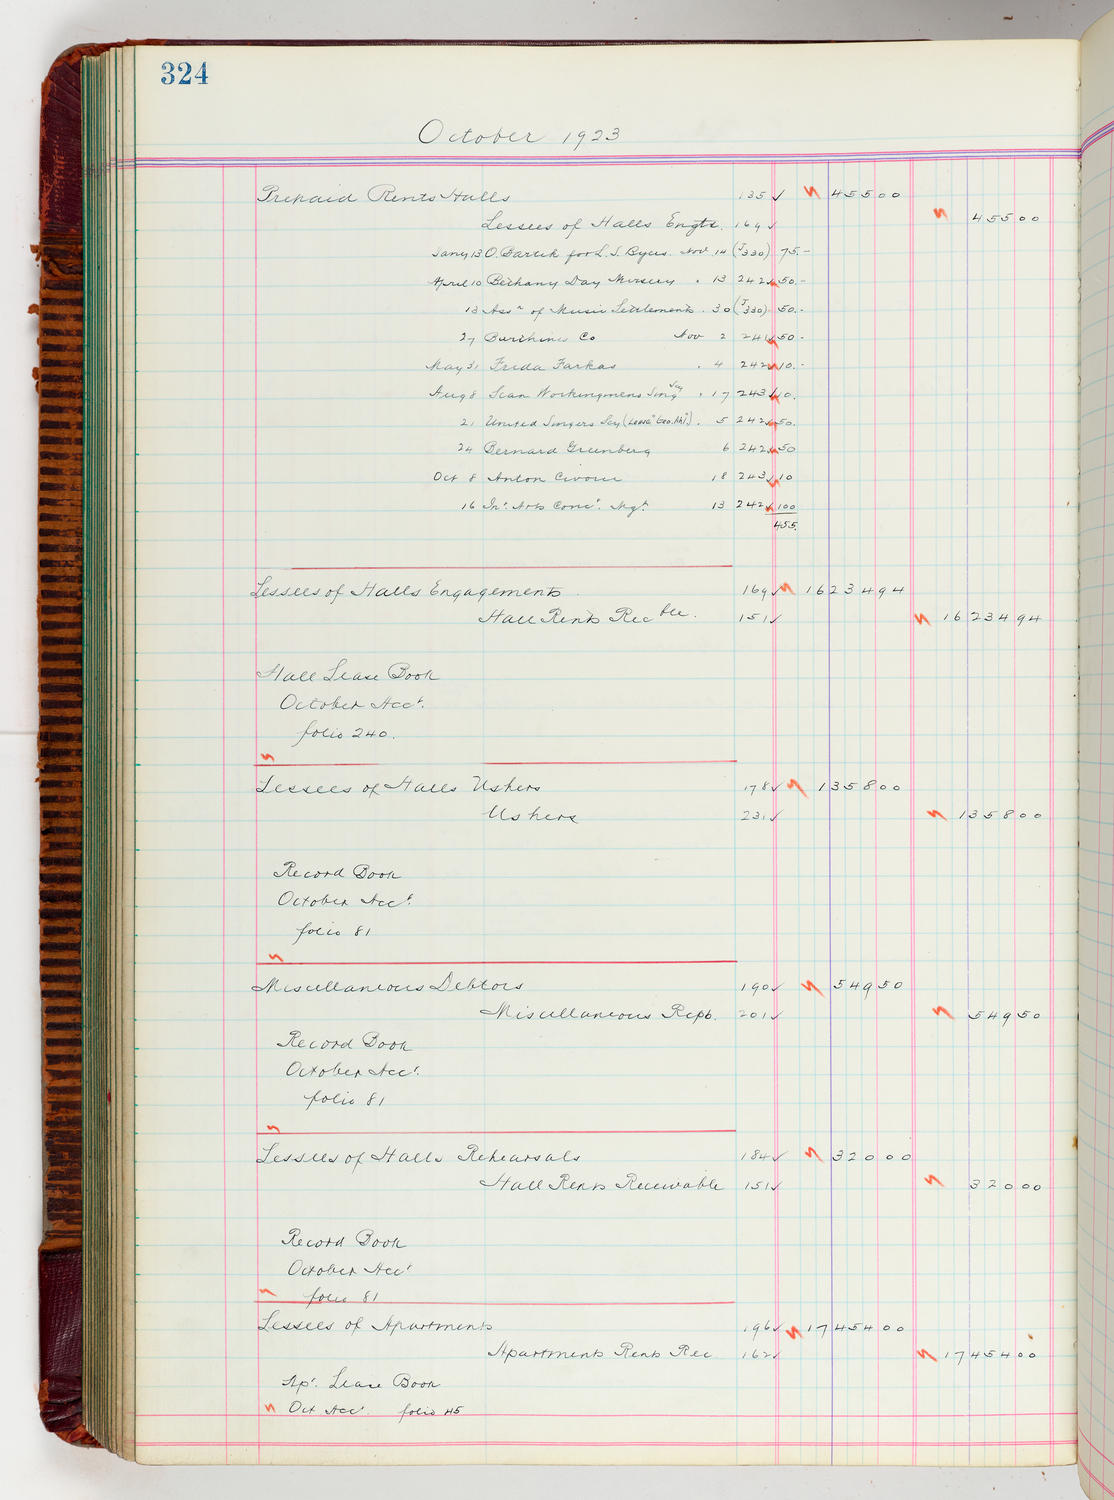 324
October 1923
Prepaid Rents Halls 135 ✓ 455 00
Lessees of Halls Engts. 169 ✓ 455 00
Jany 13 O. Bartik for L. S. Byers. Nov 14 (J330) 75.-
April 10 Bethany Day Nursery . 13 242 ✓ 50.-
13 Assn of Music Settlements . 30 (J330) 50.-
27 Co Nov 2 241 ✓ 50-
May 31 Frida Farkas . 4 242 ✓ 10.-
Aug 8 Scan Workingmens Sing Soy . 17 243 ✓ 10.
21 United Singers Soy . 5 242 ✓ 50.
24 Bernard Greenberg 6 242 ✓ 50
Oct 8 Anton 18 243 ✓ 10
16 Int. Arts Conct. Mgt. 13 242 ✓ 100
455.
Lessees of Halls Engagements 169 ✓ 16234 94
Hall Rents Recble. 151 ✓ 16234 94
Hall Lease Book
October Acct.
folio 240.
Lessees of Halls Ushers 178 ✓ 1358 00
Ushers 231 ✓ 1358 00
Record Book
October Acct.
folio 81
Miscellaneous Debtors 190 ✓ 549 50
Miscellaneous Rcpts. 201 ✓ 549 50
Record Book
October Acct.
folio 81
Lessees of Halls Rehearsals 184 ✓ 320 00
Hall Rents Receivable 151 ✓ 320 00
Record Book
October Acct
folio 81
Lessees of Apartments 196 ✓ 17454 00
Apartments Rents Rec 162 ✓ 17454 00
Apt. Lease Book
Oct Acct. folio 45